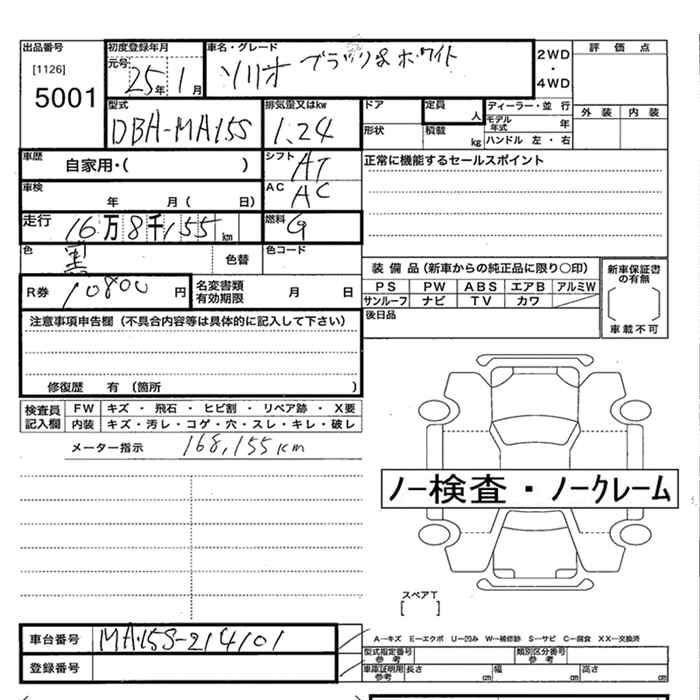 出品番号 初度登録年月 車名・グレード 評価点
[1126] 元号 25年 1月 ソリオ ブラック&ホワイト 2WD・4WD
5001 外装 内装
型式 排気量又はkw ドア 定員 人 ディーラー・並行
DBA-MA15S 1.24 形状 積載 kg モデル年式 年
ハンドル 左・右
車歴 自家用・( ) シフト AT 正常に機能するセールスポイント
車検 年 月( 日) AC AC
走行 16万8千155km 燃料 G
色 黒 色替 色コード
装備品(新車からの純正品に限り○印) 新車保証書の有無
R券 10800円 名変書類有効期限 月 日 PS PW ABS エアB アルミW
サンルーフ ナビ TV カワ
車載不可
注意事項申告欄(不具合内容等は具体的に記入して下さい) 後日品
修復歴 有(箇所 )
検査員記入欄 FW キズ・飛石・ヒビ割・リペア跡・X要
内装 キズ・汚レ・コゲ・穴・スレ・キレ・破レ
メーター指示 168,155km
ノー検査・ノークレーム
スペアT
[ ]
車台番号 MA15S-214101 A—キズ E—エクボ U—凹み W—補修跡 S—サビ C—腐食 XX—交換済
型式指定番号 参考 類別区分番号 参考
登録番号 車庫証明用参考 長さ cm 幅 cm 高さ cm